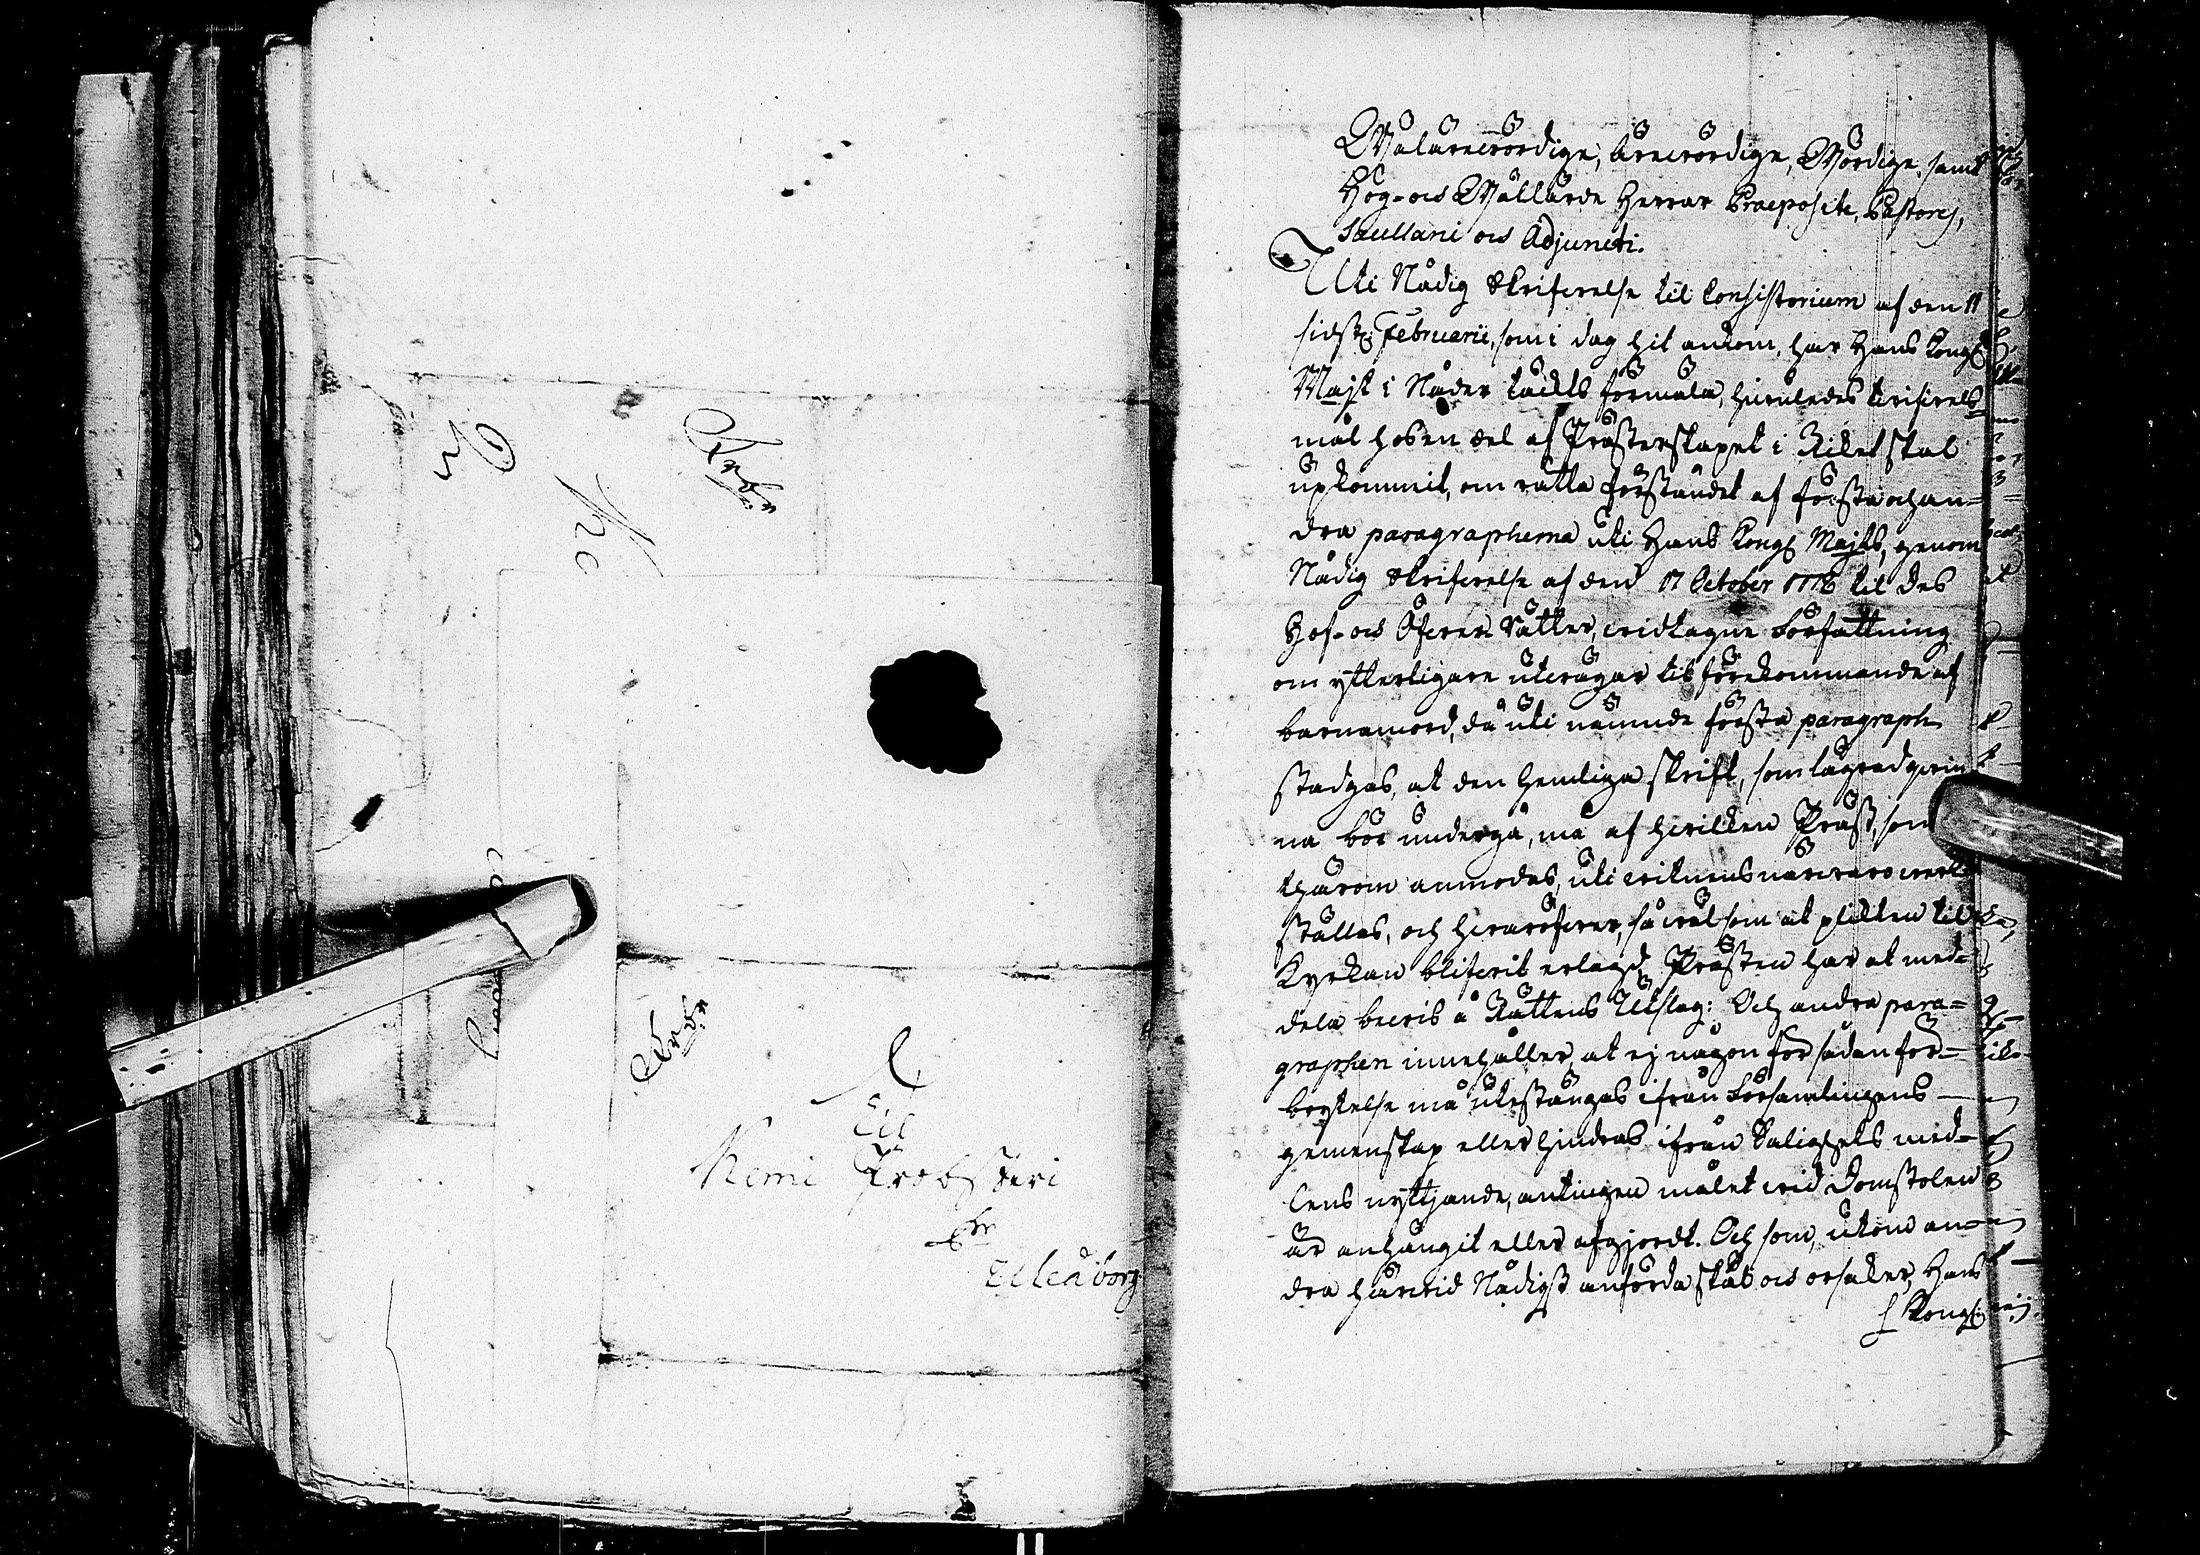 Til
Kemi Probsteri
Uleåborg
Wälärewördige, ärewördige, Wördige, samt
Hög- och Wällärde Herrar Praeposite, Pastores,
Sacellani och Adjuncti.
Uti Nådig Skrifwelse til Consistorium af den 11
sidstl. Februarii, som i dag hit ankom, har Hans Kongl.
Majst i Nåder täckts förmäla, huruledes twifwels-
mål hos en del af Prästerskapet i Riket skal
upkommit, om rätta förståndet af första och an-
dra paragrapherna uti Hans Kongl. Majsts, genom
Nådig Skrifwelse af den 17 October 1778 til des
Hof- och Öfwer Rätter, widtagne Författning
om ytterligare utwägar til förekommande af
barnamord, då uti nämnde första paragraph
stadgas, at den hemliga skrift, som lägradqwin-
na bör undergå, må af hwilken Präst, som
thärom anmodas, uti witnens närwaro werk-
ställas, och hwaröfwer, så wäl som at plikten til
Kyrkan blifwit erlagd, Prästen har at med-
dela bewis å Rättens Utslag: Och andra para-
graphen innehåller, at ej någon för sådan för-
brytelse må utestängas ifrån Församlingens
gemenskap eller hindras ifrån Salighets med-
lens nyttjande, antingen målet wid Domstolen
är anhängit eller afgjordt. Och som, utom an-
dra härwid Nådigst anförda skäl och orsaker, Hans
Kongl.